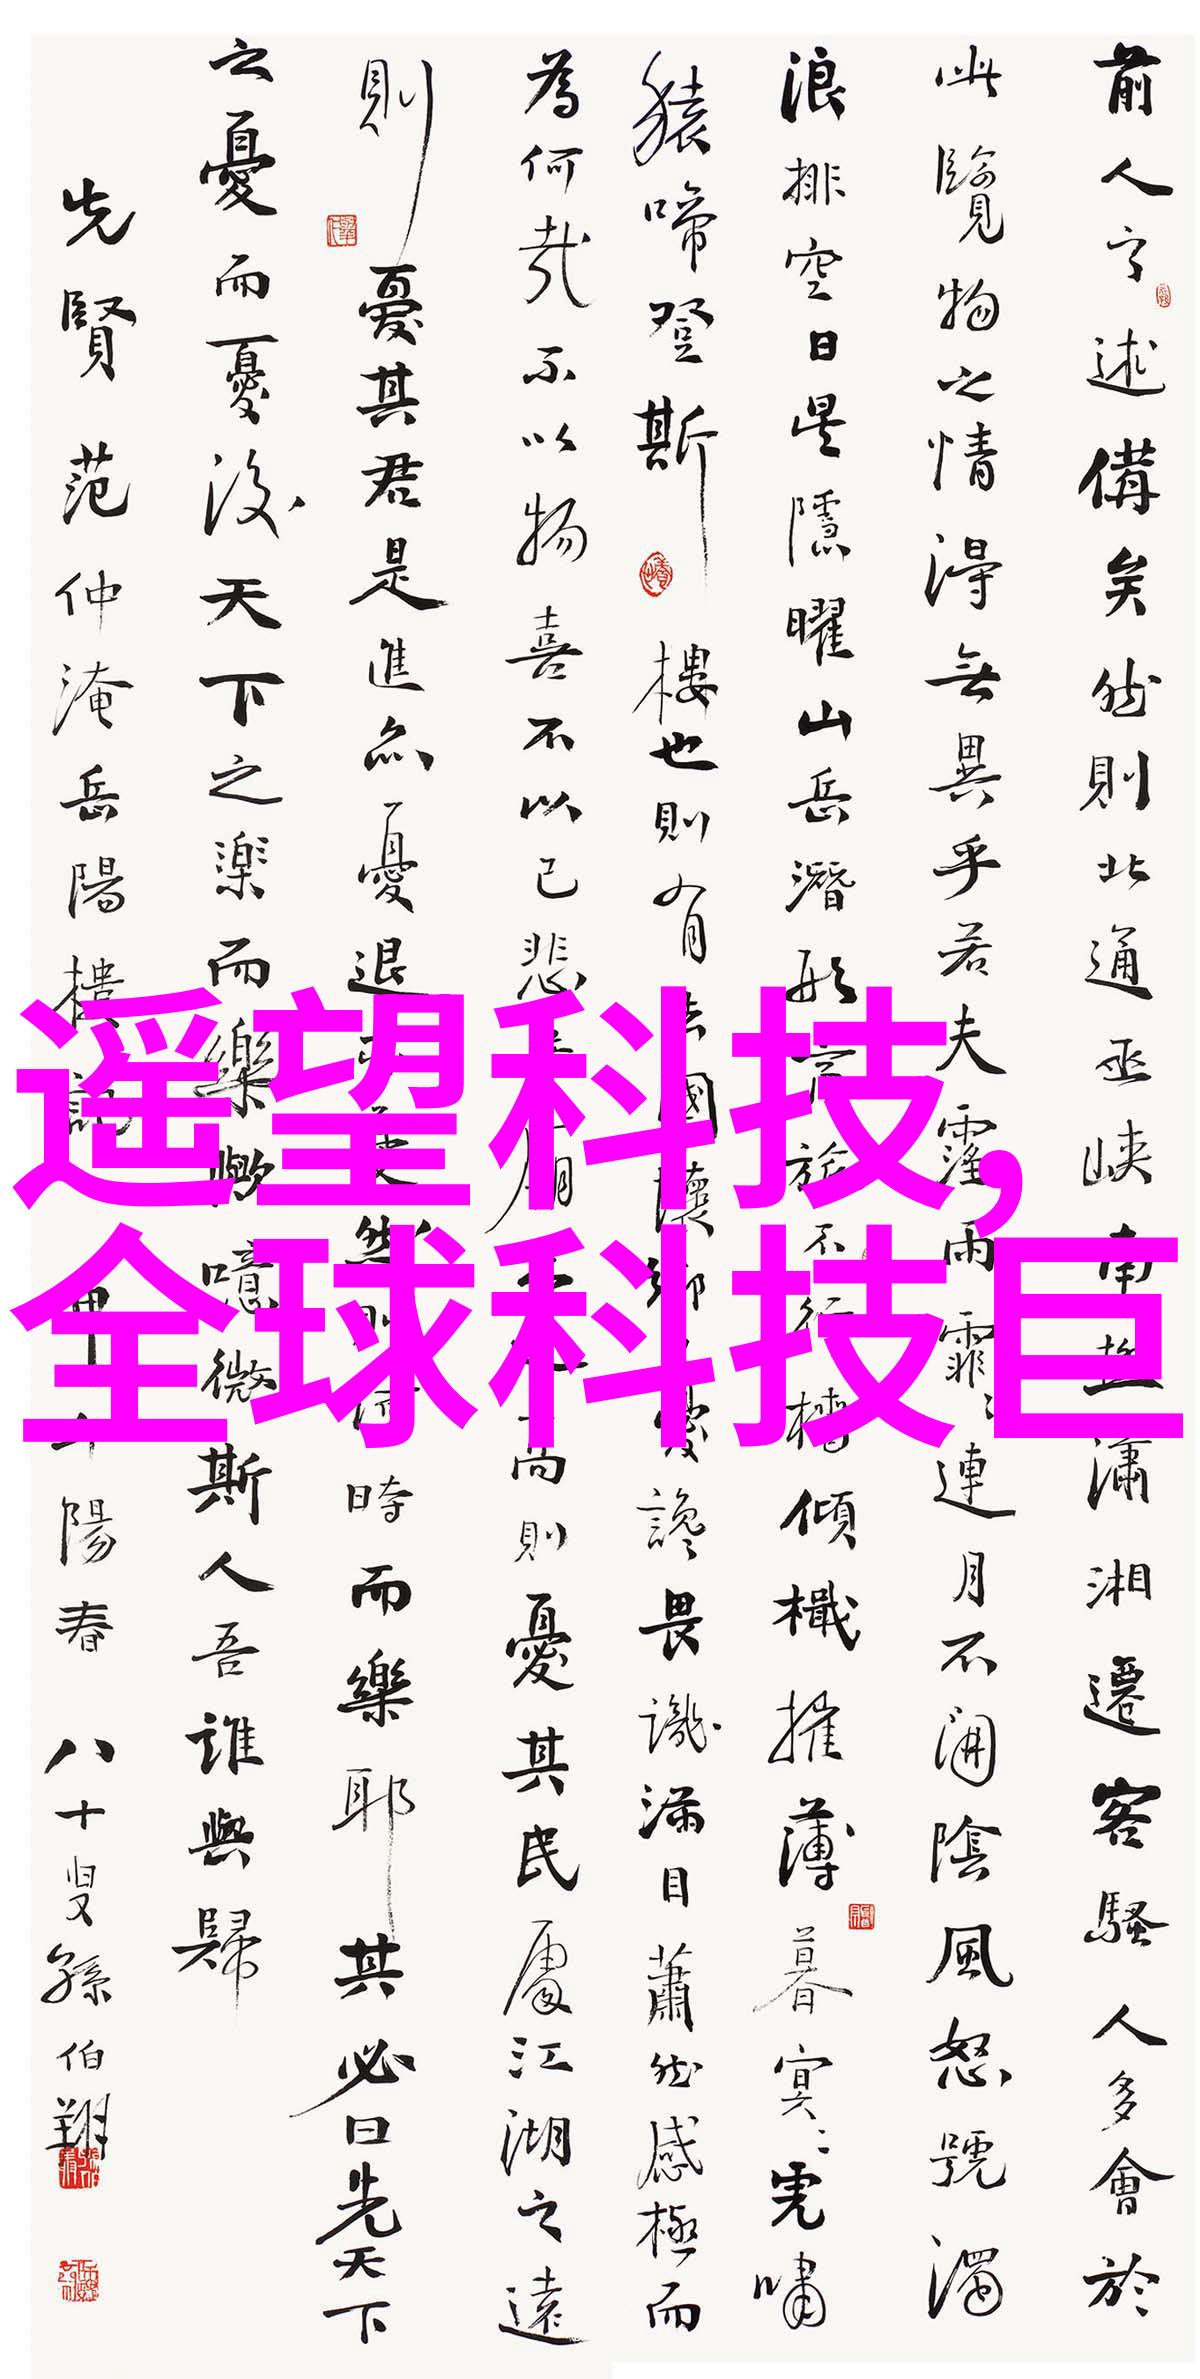 遥望科技,
全球科技巨
前人之述備矣然則北通巫峽南極瀟湘遷客騷人多會於
此覽物之情得無異乎若夫霪雨霏〻連月不開陰風怒號濁
浪排空日星隱曜山岳潛形商旅不行檣傾檝摧薄暮冥〻虎嘯
猿啼登斯樓也則有去國懷鄉憂讒畏譏滿目蕭然感極而
為何哉不以物喜不以己悲居廟之高則憂其民處江湖之遠
則憂其君是進亦憂退亦憂然則何時而樂耶其必曰先天下
之憂而憂後天下之樂而樂歟噫微斯人吾誰與歸
先賢范仲淹岳陽樓記甲午陽春八十叟孫伯翔